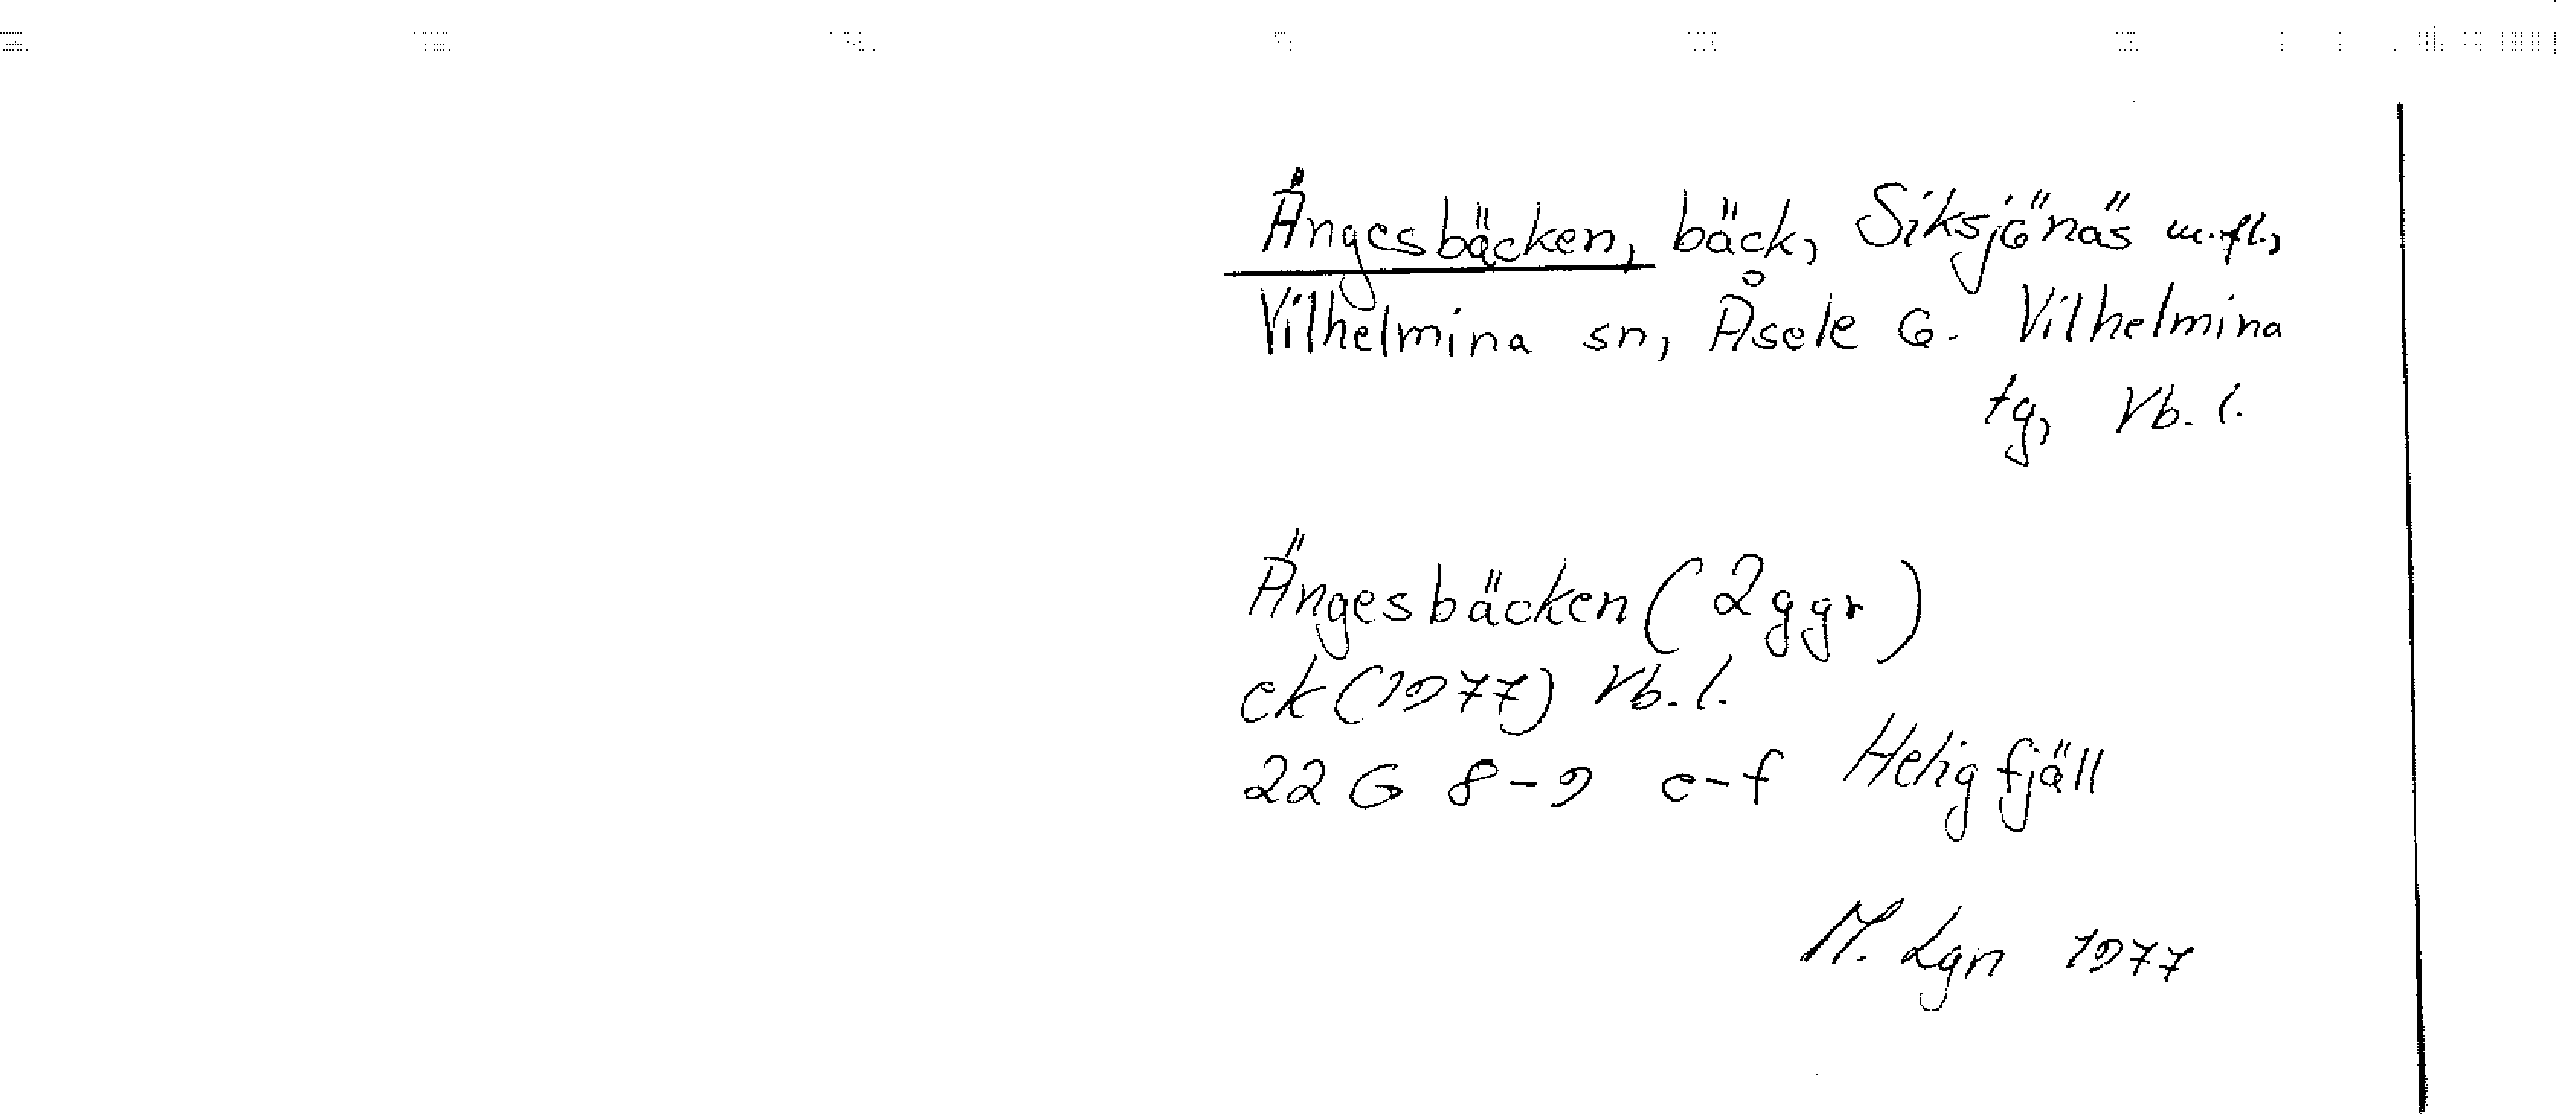 Ängesbäcken, bäck, Siksjönäs m.fl.,
Vilhelmina sn, Åsele G. Vilhelmina
tg, Vb. l.
Ängesbäcken (2 ggr)
ek (1977) Vb. l.
22 G 8-9 e-f Heligfjäll
M. Lgn 1977